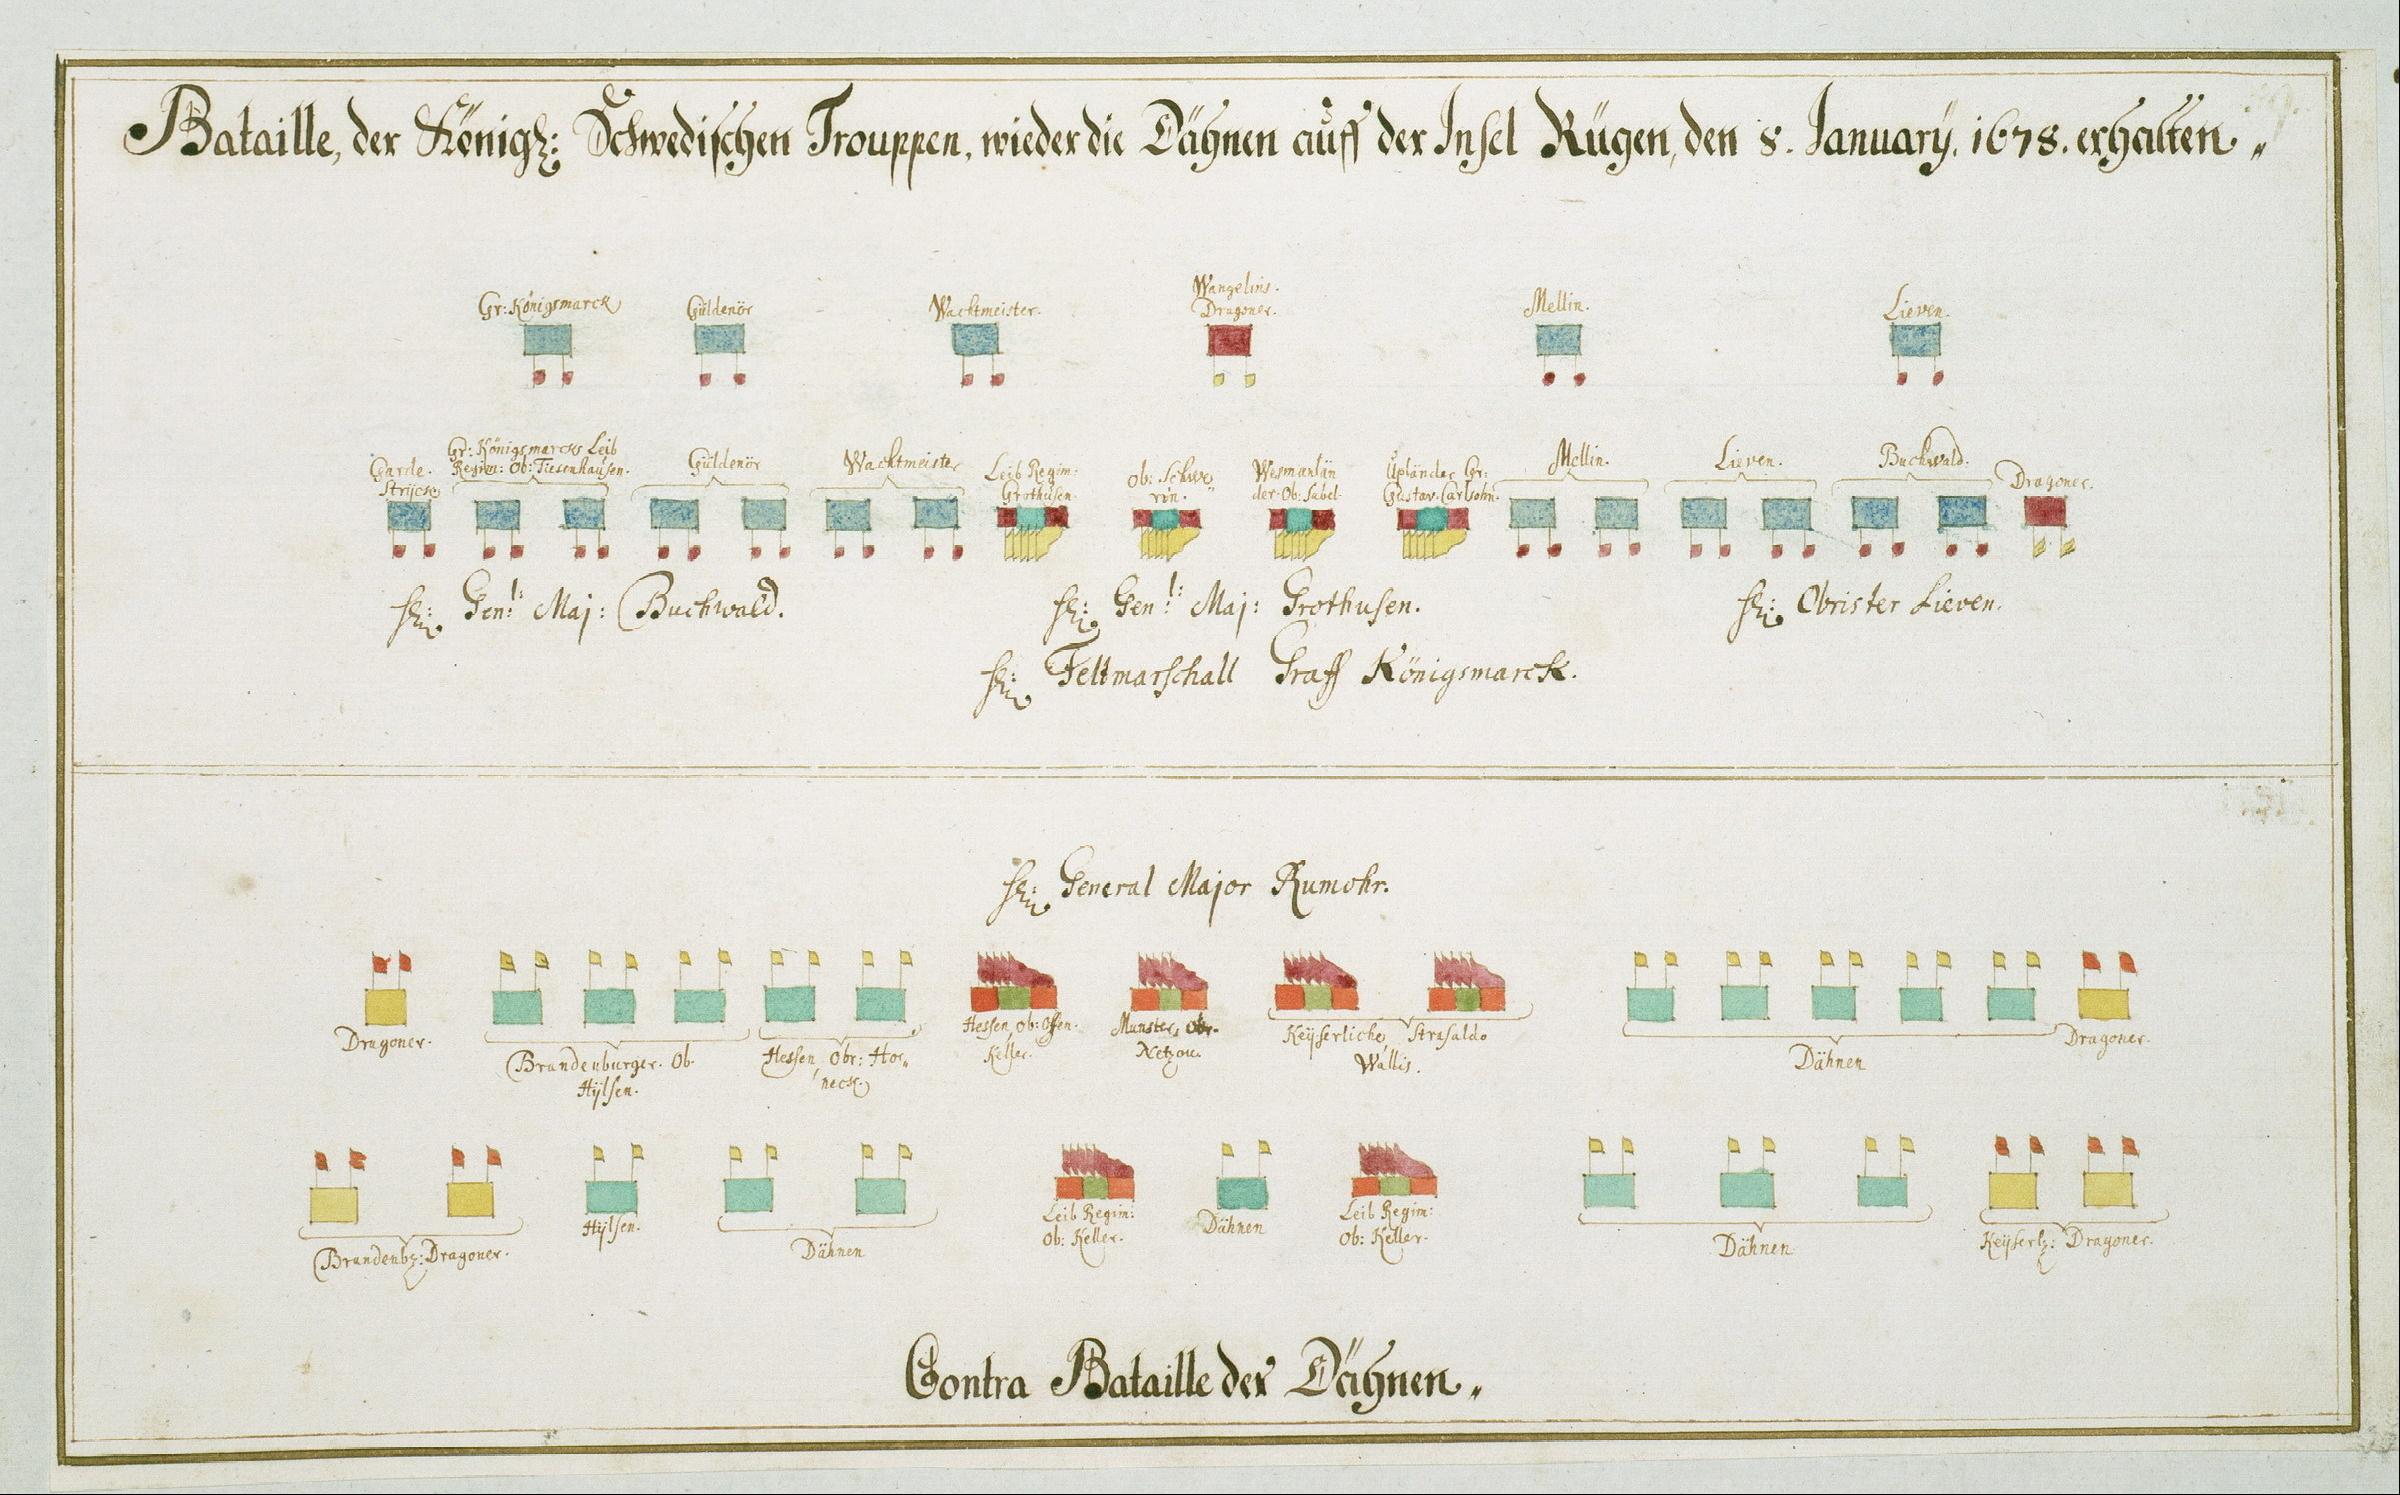 Bataille, der Königl: Schwedischen Trouppen, wieder die Dähnen auff der Insel Rügen, den 8. January. 1678. erhalten
Gr: Königsmarck
Güldenör
Wachtmeister.
Wangelins.
Dragoner.
Mellin.
Lieven.
Garde.
Gr: Königsmarcks Leib
Regim: Ob: Tiesenhausen.
Güldenör
Wachtmeister
Leib Regim:
Grothusen
Ob: Schwe
rin.
Wesmanlän
der Ob: Sabel
Upländer Gr:
Gustav Carlsohn.
Mellin.
Lieven.
Buchwald.
Dragoner.
Genl: Maj: Buchwald.
Genl: Maj: Grothusen.
Obrister Lieven.
Feltmarschall Graff Königsmarck.
General Major Rumohr.
Dragoner.
Brandenburger. Ob.
Hÿlsen.
Hessen, Obr: Hor„
neck.
Hessen, Ob: Offen.
Keller.
Munster, Obr.
Netzou.
Keÿserliche, Strasaldo
Wallis.
Dähnen
Dragoner.
Brandenb: Dragoner.
Hÿlsen.
Dähnen
Leib Regim:
Ob: Keller.
Dähnen
Leib Regim:
Ob: Keller.
Dähnen
Keÿserl: Dragoner.
Contra Bataille der Dähnen